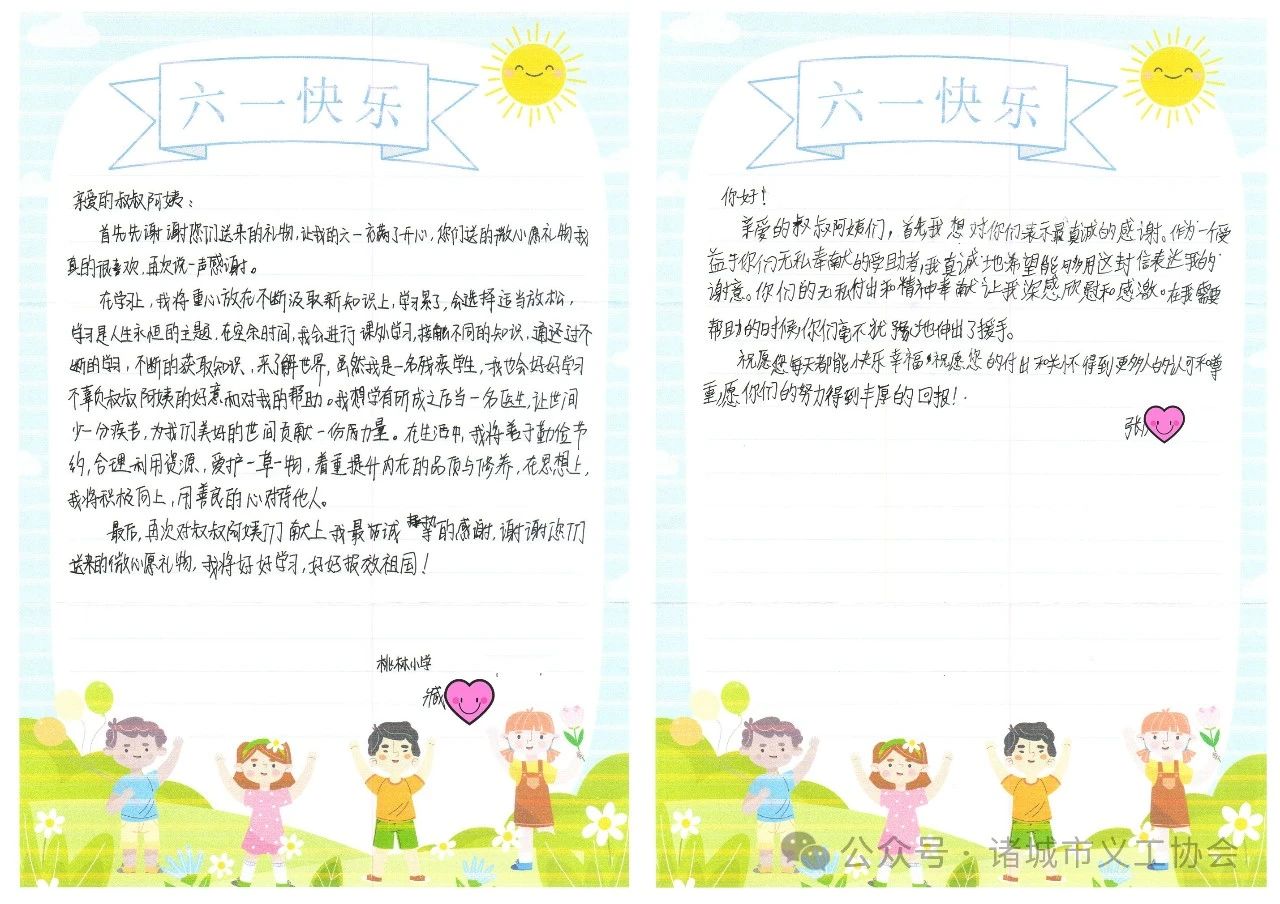 六一快乐
亲爱的叔叔阿姨：
首先先谢谢您们送来的礼物，让我的六一充满了开心，您们送的微心愿礼物我
真的很喜欢，再次说一声感谢。
在学习上，我将重心放在不断汲取新知识上，学习累了，会选择适当放松，
学习是人生永恒的主题，在空余时间，我会进行课外学习，接触不同的知识，通过不
断的学习，不断的获取知识，来了解世界，虽然我是一名残疾学生，我也会好好学习
不辜负叔叔阿姨的好意和对我的帮助。我想学有所成之后当一名医生，让世间
少一分疾苦，为我们美好的世间贡献一份力量。在生活中，我将善于勤俭节
约，合理利用资源，爱护一草一物，着重提升内在的品质与修养，在思想上，
我将积极向上，用善良的心对待他人。
最后，再次对叔叔阿姨们献上我最真诚的感谢，谢谢您们
送来的微心愿礼物，我将好好学习，好好报效祖国！
桃林小学
臧
六一快乐
你好！
亲爱的叔叔阿姨们，首先我想对你们表示最真诚的感谢。作为一个受
益于你们无私奉献的受助者，我真诚地希望能够用这封信表达我的
谢意。你们的无私付出和精神奉献让我深感欣慰和感激。在我需要
帮助的时候你们毫不犹豫地伸出了援手。
祝愿您每天都能快乐幸福，祝愿您的付出和关怀得到更多人的认可和尊
重，愿你们的努力得到丰厚的回报！
张
公众号·诸城市义工协会